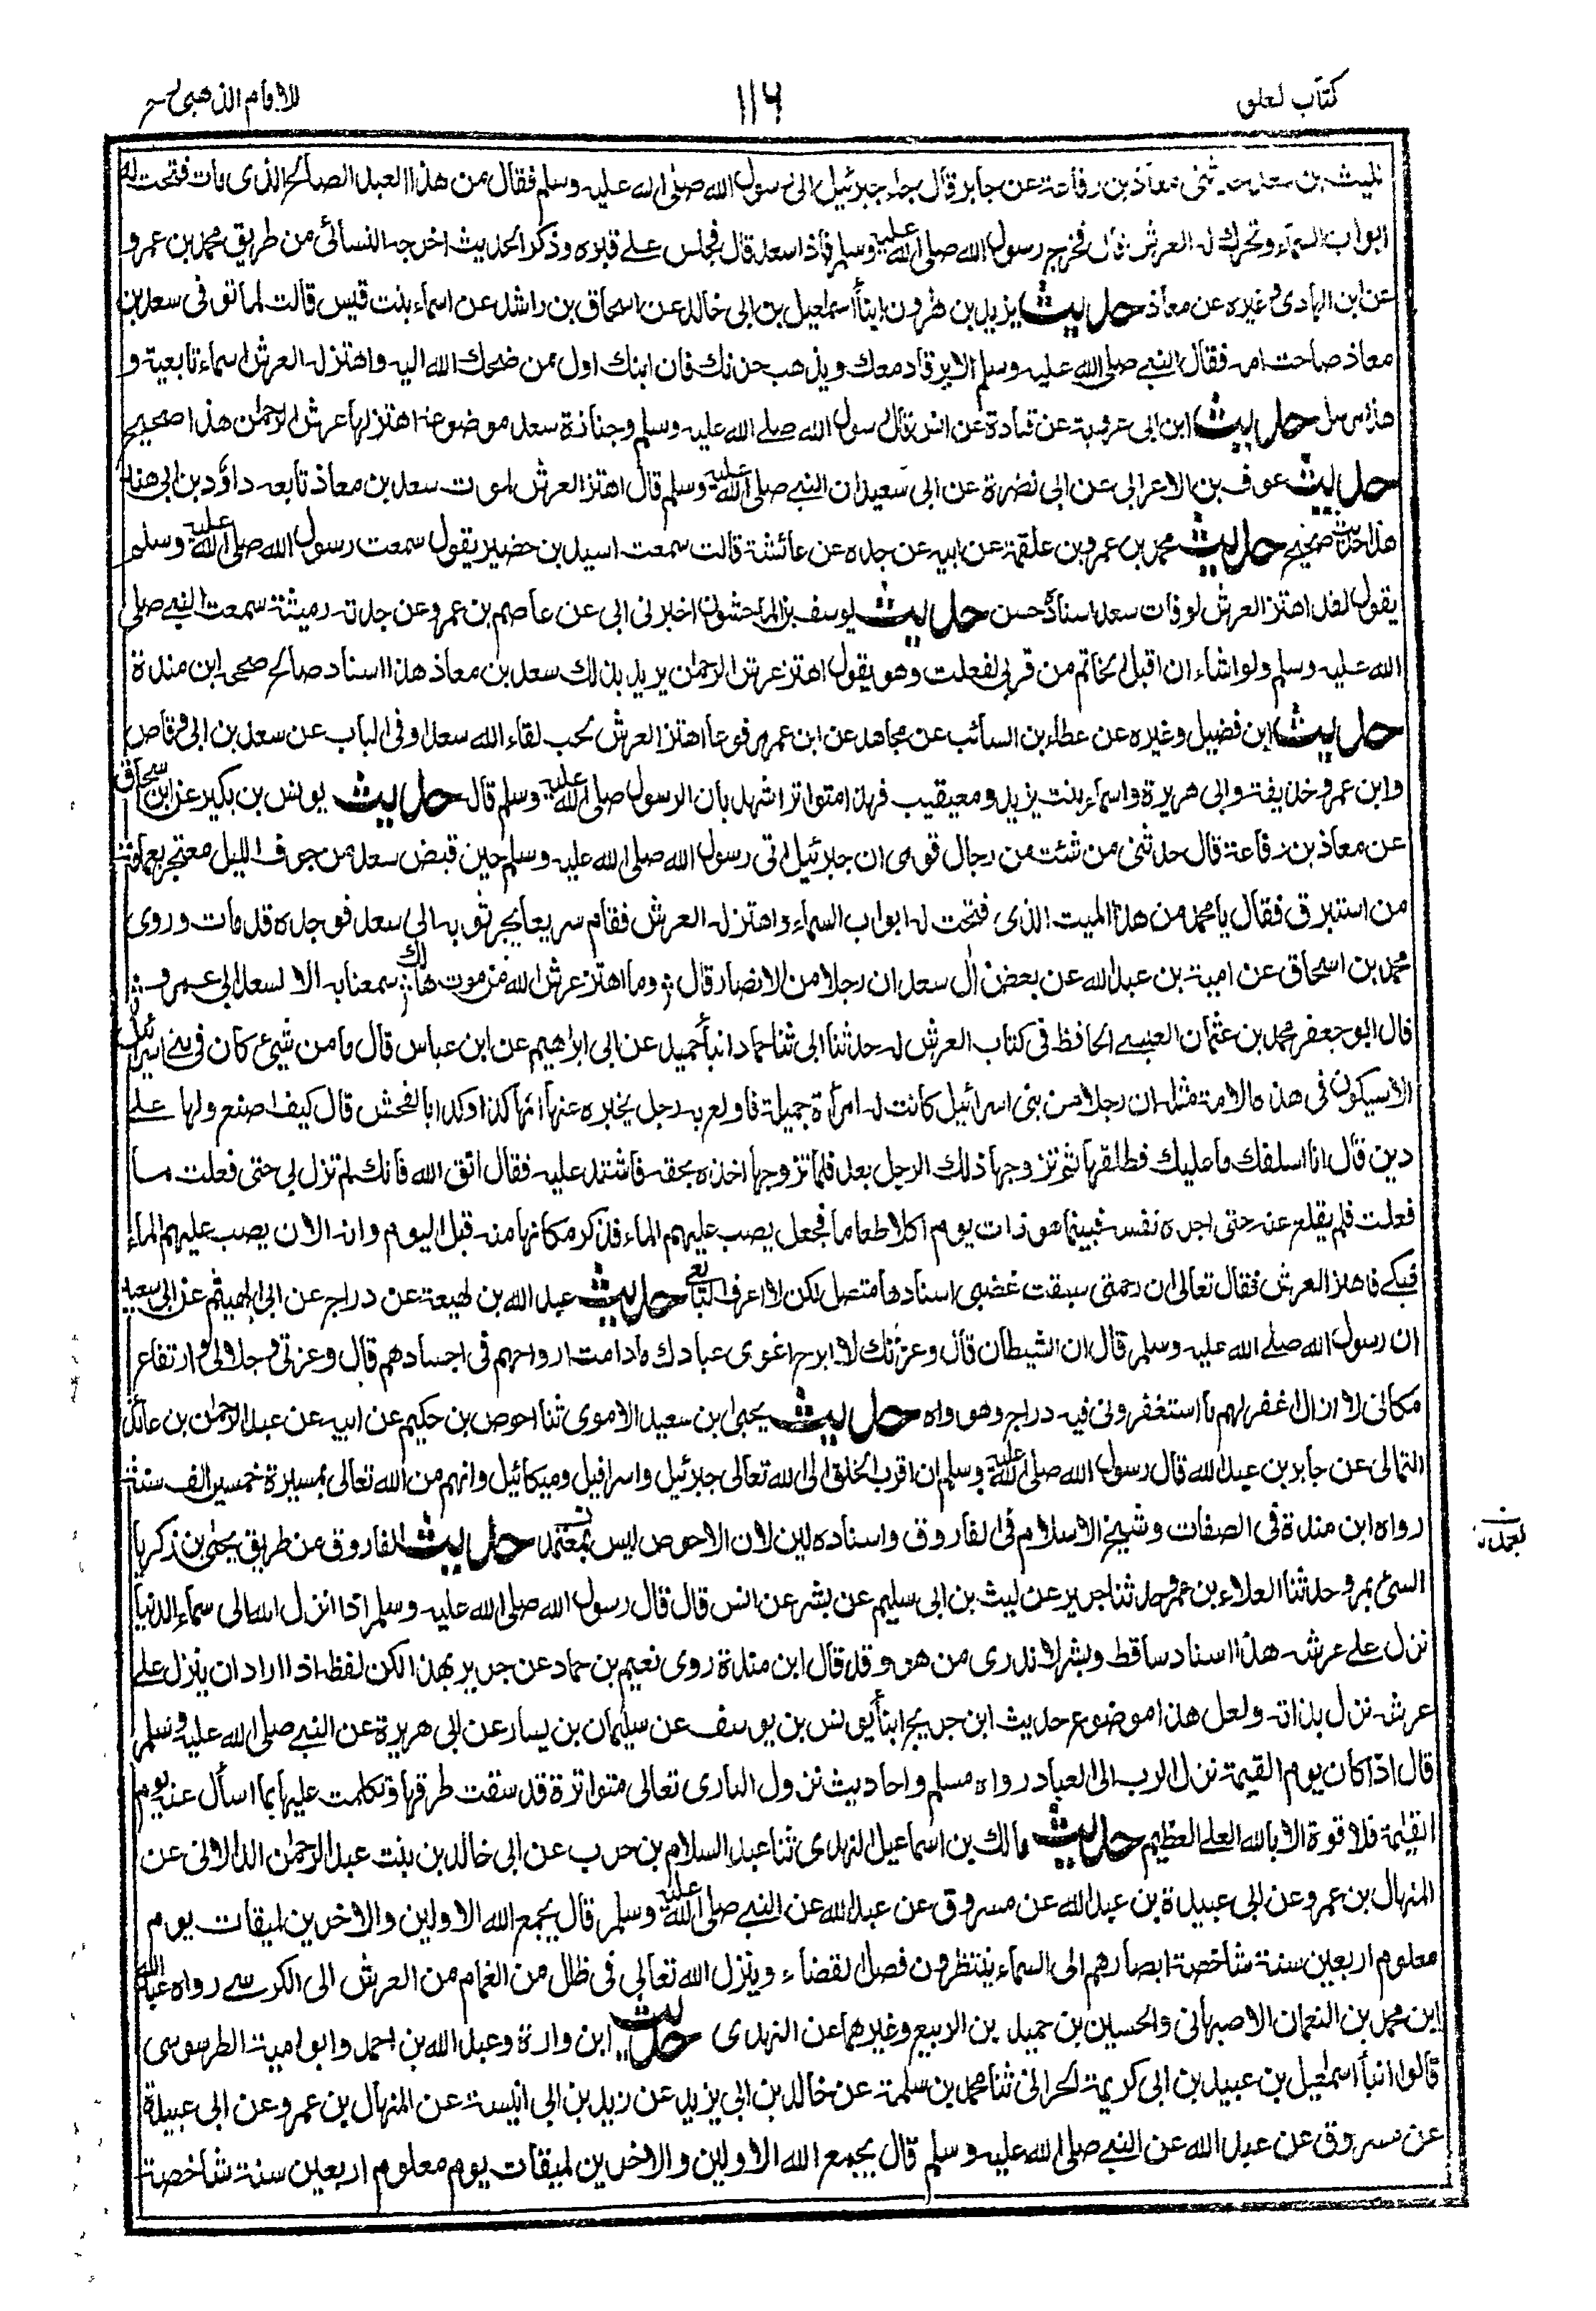 كتاب لعلو
١١٦
للامام الذهبى رح
الليث بن سعد حدثنى معاذ بن رفاعة عن جابر قال جاء جبرئيل الى رسول الله صلى الله عليه وسلم فقال من هذا العبد الصالح الذى مات فتحت له
ابواب السماء وتحرك له العرش قال فخرج رسول الله صلى الله عليه وسلم فاذا سعد قال فجلس على قبره وذكر الحديث اخرجه النسائى من طريق محمد بن عمرو
عن ابن الهادى وغيره عن معاذ حديث يزيد بن هارون انبأ اسمعيل بن ابى خالد عن اسحاق بن راشد عن اسماء بنت قيس قالت لما توفى سعد بن
معاذ صاحت امه فقال النبي صلى الله عليه وسلم الا يرقاد معك ويذهب حزنك فان ابنك اول من ضحك الله اليه واهتز له العرش اسماء تابعية و
هذا مرسل حديث ابن ابى عروبة عن قتادة عن انس قال رسول الله صلى الله عليه وسلم وجنازة سعد موضوعة اهتز لها عرش الرحمن هذا صحيح
حديث عوف بن الاعرابى عن ابى نضرة عن ابى سعيد ان النبي صلى الله عليه وسلم قال اهتز العرش لموت سعد بن معاذ تابعه داؤد بن ابى هند
هذا حديث صحيح حديث محمد بن عمرو بن علقمة عن ابيه عن جده عن عائشة قالت سمعت اسيد بن حضير يقول سمعت رسول الله صلى الله عليه وسلم
يقول لقد اهتز العرش لوفات سعد اسناده حسن حديث يوسف بن الماجشون اخبرنى ابى عن عاصم بن عمرو عن جدته رميثة سمعت النبي صلى
الله عليه وسلم ولو اشاء ان اقبل بخاتم من قربى لفعلت وهو يقول اهتز عرش الرحمن يريد بذلك سعد بن معاذ هذا اسناد صالح صححه ابن مندة
حديث ابن فضيل وغيره عن عطاء بن السائب عن مجاهد عن ابن عمر مرفوعا اهتز العرش لحب لقاء الله سعدا وفى الباب عن سعد بن ابى وقاص
وابن عمرو وحذيفة وابى هريرة واسماء بنت يزيد ومعيقيب فهذا متواتر اشهد بان الرسول صلى الله عليه وسلم قال حديث يونس بن بكير عن ابن اسحاق
عن معاذ بن رفاعة قال حدثنى من شئت من رجال قومى ان جبرئيل اتى رسول الله صلى الله عليه وسلم حين قبض سعد من جوف الليل معتجر بعمامة
من استبرق فقال يا محمد من هذا الميت الذى فتحت له ابواب السماء واهتز له العرش فقام سريعا يجر ثوبه الى سعد فوجده قد مات وروى
محمد بن اسحاق عن امية بن عبد الله عن بعض آل سعد ان رجلا من الانصار قال شعر وما اهتز عرش الله من موت هالك سمعنا به الا لسعد ابى عمرو
قال ابو جعفر محمد بن عثمان العبسي الحافظ فى كتاب العرش له حدثنا ابى ثنا حماد انبأ حميد عن ابى ابراهيم عن ابن عباس قال ما من شيء كان فى بنى اسرائيل
الا سيكون فى هذه الامة مثله ان رجلا من بنى اسرائيل كانت له امرأة جميلة فاولع به رجل يخبره عنها انها كذا وكذا بالفحش قال كيف اصنع ولها على
دين قال انا اسلفك ما عليك فطلقها ثم تزوجها ذلك الرجل بعد فلما تزوجها اخذه بحقه فاشتد عليه فقال اتق الله فانك لم تزل بى حتى فعلت ما
فعلت فلم يقلع عنه حتى اجره نفسه فبينما هو ذات يوم اكلا طعاما فجعل يصب عليهم الماء فذكر مكانها منه قبل اليوم وانه الان يصب عليهم الماء
فبكى فاهتز العرش فقال تعالى ان رحمتى سبقت غضبى اسنادها متصل لكن لا اعرف التابعى حديث عبد الله بن لهيعة عن دراج عن ابى الهيثم عن ابى سعيد
ان رسول الله صلى الله عليه وسلم قال ان الشيطان قال وعزتك لا ابرح اغوى عبادك مادامت ارواحهم فى اجسادهم قال وعزتى وجلالى وارتفاع
مكانى لا ازال اغفر لهم ما استغفرونى فيه دراج وهو واه حديث يحيى ابن سعيد الاموى ثنا احوص بن حكيم عن ابيه عن عبد الرحمن بن عائذ
الثمالى عن جابر بن عبد الله قال رسول الله صلى الله عليه وسلم ان اقرب الخلق الى الله تعالى جبرئيل واسرافيل وميكائيل وانهم من الله تعالى بمسيرة خمسين الف سنة
رواه ابن مندة فى الصفات وشيخ الاسلام فى الفاروق واسناده لين لان الاحوص ليس بمعتمد حديث الفاروق عن طريق يحيى بن زكريا
السئ بمرو حدثنا العلاء بن عمرو حدثنا جرير عن ليث بن ابى سليم عن بشر عن انس قال قال رسول الله صلى الله عليه وسلم اذا انزل الله الى سماء الدنيا
نزل على عرشه هذا اسناد ساقط وبشر لا ندرى من هو وقد قال ابن مندة روى نعيم بن حماد عن جرير بهذا لكن لفظه اذا اراد ان ينزل على
عرشه نزل بذاته ولعل هذا موضوع حديث ابن جريج انبأ يونس بن يوسف عن سليمان بن يسار عن ابى هريرة عن النبي صلى الله عليه وسلم
قال اذا كان يوم القيمة نزل الرب الى العباد رواه مسلم واحاديث نزول البارى تعالى متواترة قد سقت طرقها وتكلمت عليها بما اسأل عنه يوم
القيمة فلا قوة الا بالله العلى العظيم حديث مالك بن اسماعيل النهدى ثنا عبد السلام بن حرب عن ابى خالد بن بنت عبد الرحمن الدالانى عن
المنهال بن عمرو عن ابى عبيدة بن عبد الله عن مسروق عن عبد الله عن النبي صلى الله عليه وسلم قال يجمع الله الاولين والاخرين لميقات يوم
معلوم اربعين سنة شاخصة ابصارهم الى السماء ينتظرون فصل القضاء وينزل الله تعالى فى ظلل من الغمام من العرش الى الكرسى رواه عبد الله
ابن محمد بن النعمان الاصبهانى والحسين بن حميد بن الربيع وغيرهما عن النهدى حديث ابن وارة وعبد الله بن احمد وابو امية الطرسوسى
قالوا انبأ اسمعيل بن عبيد بن ابى كريمة الحرانى ثنا محمد بن سلمة عن خالد بن ابى يزيد عن زيد بن ابى انيسة عن المنهال بن عمرو عن ابى عبيدة
عن مسروق عن عبد الله عن النبي صلى الله عليه وسلم قال يجمع الله الاولين والاخرين لميقات يوم معلوم اربعين سنة شاخصة